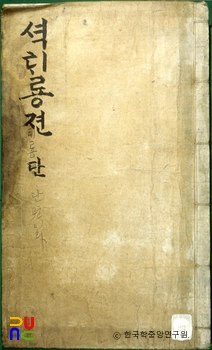 셕ᄐᆡ룡젼 단
© 한국학중앙연구원